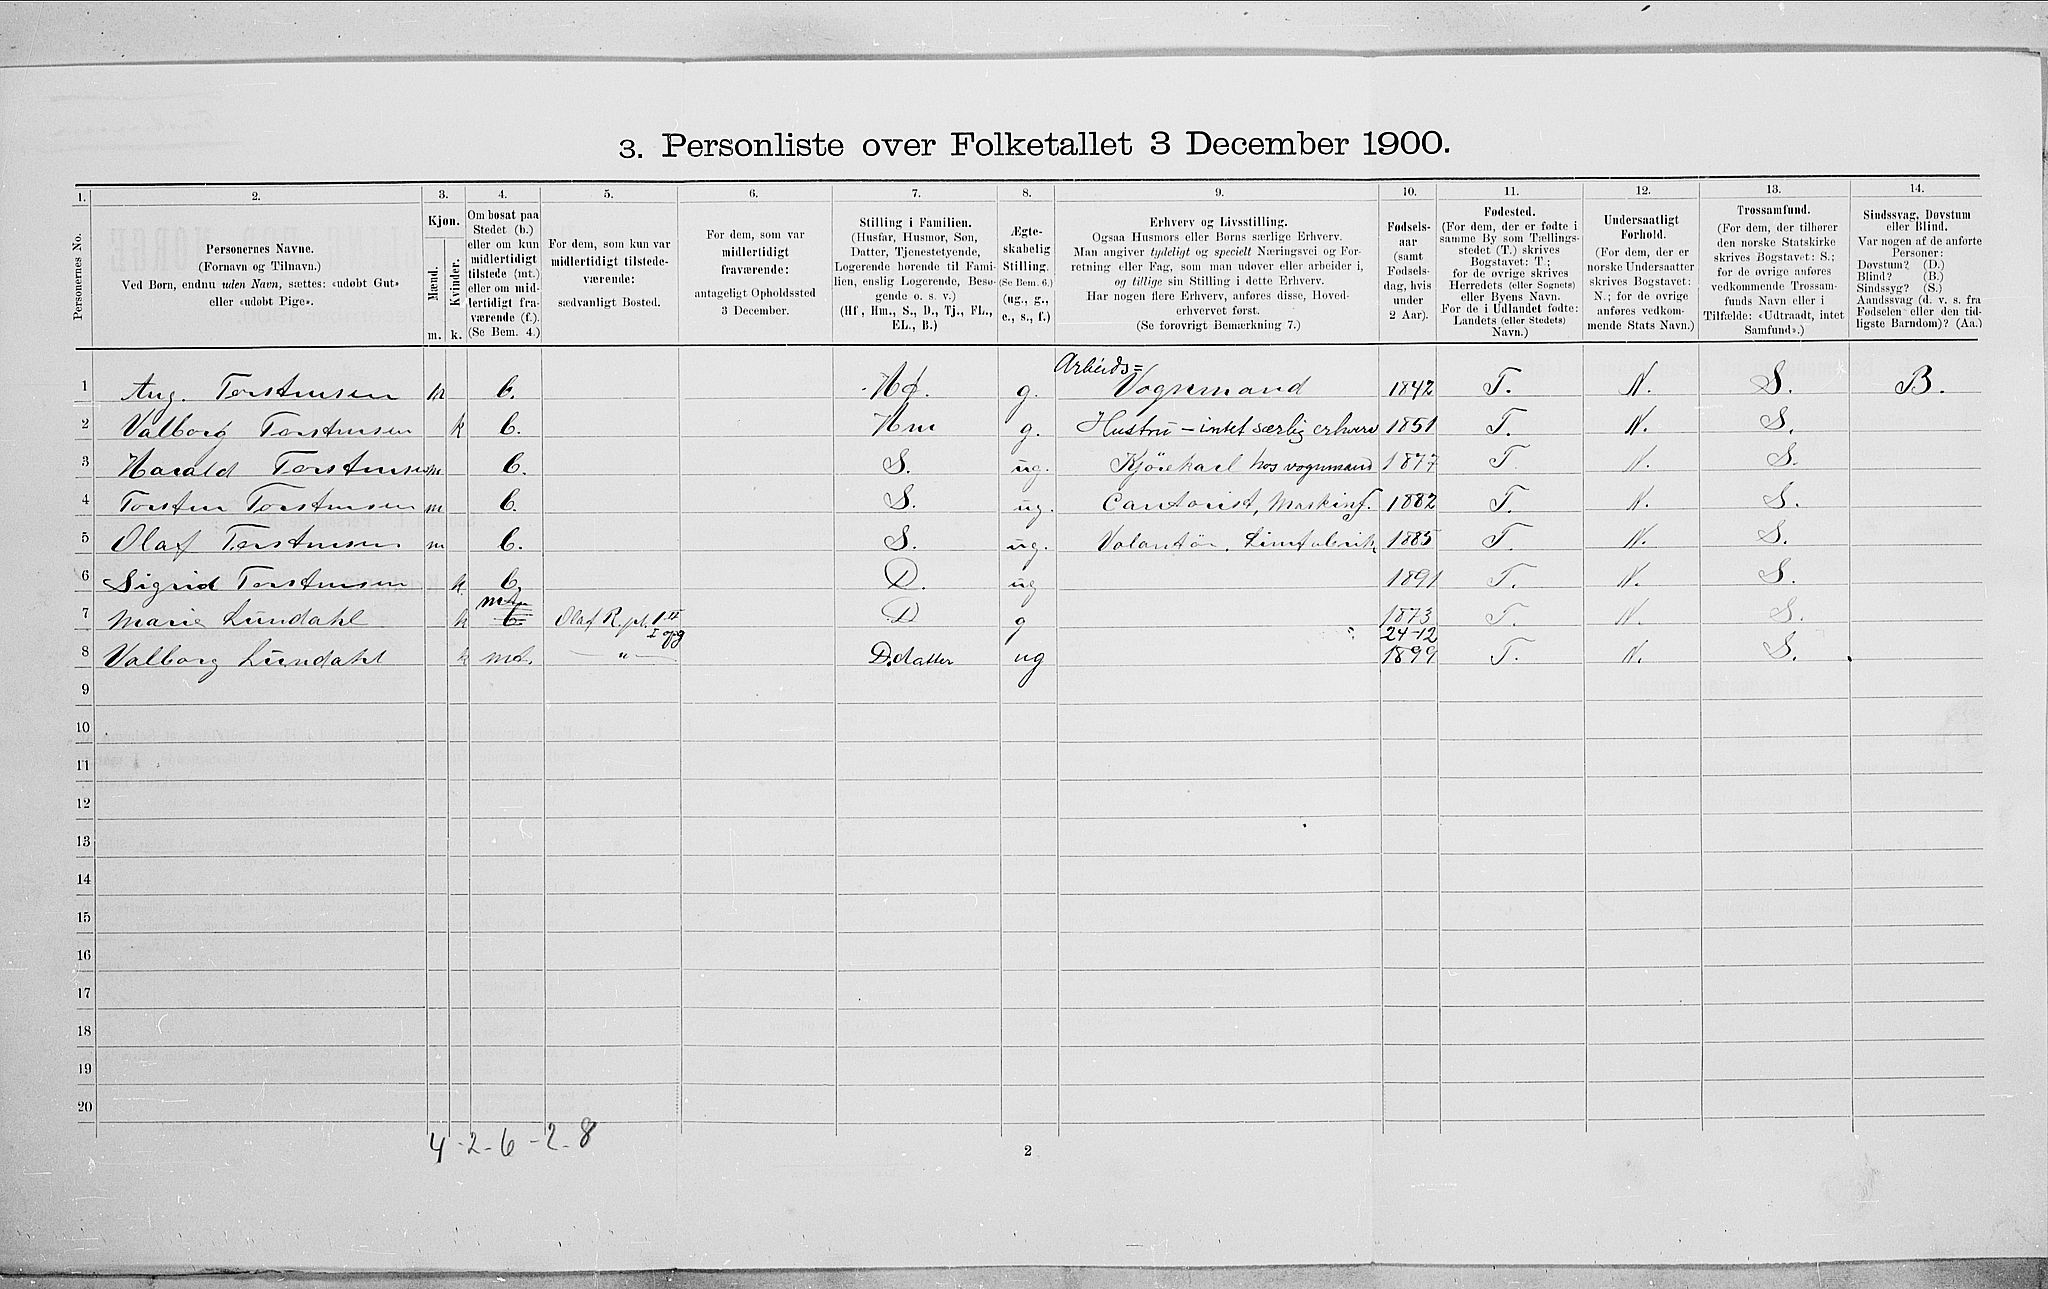 3. Personliste over Folketallet 3 December 1900.
1. 2. 3. 4. 5. 6. 7. 8. 9. 10. 11. 12. 13. 14.
Personernes No.
Personernes Navne.
(Fornavn og Tilnavn.)
Ved Børn, endnu uden Navn, sættes: «udøbt Gut»
eller «udøbt Pige».
Kjøn.
Mænd.
Kvinder.
m. k.
Om bosat paa
Stedet (b.)
eller om kun
midlertidigt
tilstede (mt.)
eller om mid-
lertidigt fra-
værende (f.).
(Se Bem. 4.)
For dem, som kun var
midlertidigt tilstede-
værende:
sædvanligt Bosted.
For dem, som var
midlertidigt
fraværende:
antageligt Opholdssted
3 December.
Stilling i Familien.
(Husfar, Husmor, Søn,
Datter, Tjenestetyende,
Logerende hørende til Fami-
lien, enslig Logerende, Besø-
gende o. s. v.)
(Hf, Hm., S., D., Tj., FL.,
EL., B.)
Ægte-
skabelig
Stilling.
(Se Bem. 6.)
(ug., g.,
e., s., f.)
Erhverv og Livsstilling.
Ogsaa Husmors eller Børns særlige Erhverv.
Man angiver tydeligt og specielt Næringsvei og For-
retning eller Fag, som man udøver eller arbeider i,
og tillige sin Stilling i dette Erhverv.
Har nogen flere Erhverv, anføres disse, Hoved-
erhvervet først.
(Se forøvrigt Bemærkning 7.)
Fødsels-
aar
(samt
Fødsels-
dag, hvis
under
2 Aar).
Fødested.
(For dem, der er fødte i
samme By som Tællings-
stedet (T.) skrives
Bogstavet: T.;
for de øvrige skrives
Herredets (eller Sognets)
eller Byens Navn.
For de i Udlandet fødte:
Landets (eller Stedets)
Navn.)
Undersaatligt
Forhold.
(For dem, der er
norske Undersaatter
skrives Bogstavet:
N.; for de øvrige
anføres vedkom-
mende Stats Navn.)
Trossamfund.
(For dem, der tilhører
den norske Statskirke
skrives Bogstavet: S.;
for de øvrige anføres
vedkommende Trossam-
funds Navn eller i
Tilfælde: «Udtraadt, intet
Samfund».)
Sindssvag, Døvstum
eller Blind.
Var nogen af de anførte
Personer:
Døvstum? (D.)
Blind? (B.)
Sindssyg? (S.)
Aandssvag (d. v. s. fra
Fødselen eller den tid-
ligste Barndom)? (Aa.)
Arbeids=
1 Aug. Torstensen m b. Hf. g. Vognmand 1842 T. N. S. B.
2 Valborg Torstensen k b. Hm g. Hustru - intet særlig erhverv 1851 T. N. S.
3 Harald Torstensen m b. S. ug. Kjørekarl hos vognmand 1877 T N. S.
4 Torsten Torstensen m b. S. ug. Contorist, Maskinf. 1882 T. N. S.
5 Olaf Torstensen m b. S. ug. Volontør, Limfabrik 1885 T. N. S.
6 Sigrid Torstensen k b. D. ug 1891 T. N. S.
mt.
7 Marie Lundahl k b. Olaf R. pl. 1 II D g 1873 T. N. S.
I opg 24-12
8 Valborg Lundahl k mt. — " — D.datter ug 1899 T. N. S.
9
10
11
12
13
14
15
16
17
18
19
20
4 - 2 - 6 - 2 - 8
2